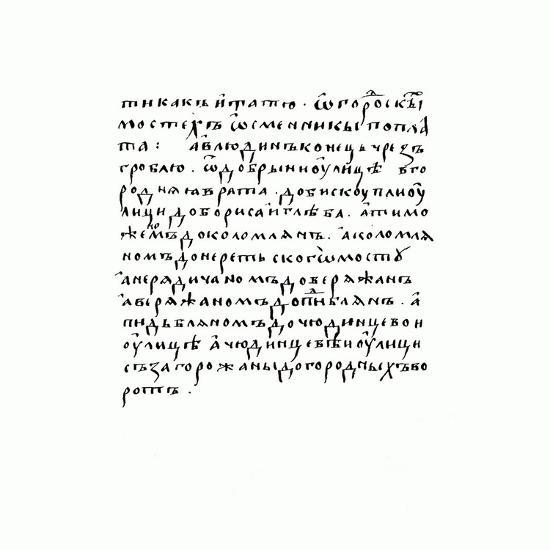 тнкакъ ѝтатѡ · ѿгородскы
мостехъ ѿсменникы поплѧ
та : авлюдинъконець чрезъ
гроблю . ѿдобрыниꙋлицѣ вго
роднꙗꙗврата . добискоуплиоу
лици доборисаиглѣба . атимо
жемъдоколомлѧнъ . аколомлѧ
номъдонеретьскогомостꙋ
анерѧдичаномъдоверѧжанъ
авѣрѧжаномъдопидблѧнъ . а
пидьблѧномъдочюдинцевои
ѹлицѣ ачюдинцевѣиѹлици
съзагорожаныдогородныхъво
ротъ .